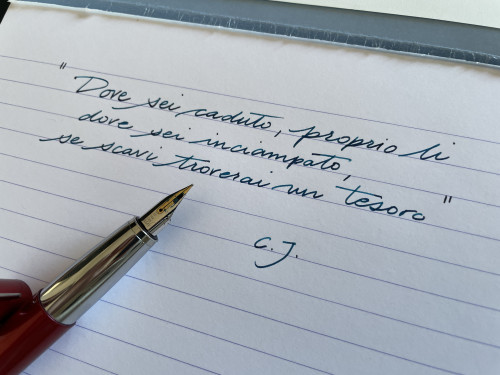 "Dove sei caduto, proprio li
dove sei inciampato,
se scavi troverai un tesoro"
C. J.